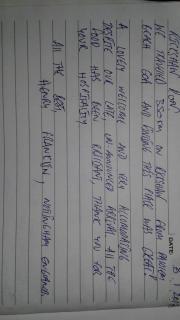 DATE
RICKSHAW RUN
WE TRAVELED 3500km ON RICKSHAW FROM PANJIM
BEACH GOA AND FINDING THIS PLACE WAS GREAT!
A LOVELY WELCOME AND VERY ACCOMODATING
DESPITE OUR LATE, UN-ANNOUNCED ARRIVAL. ALL THE
FOOD HAS BEEN BRILLIANT, THANK YOU FOR
YOUR HOSPITALITY
ALL THE BEST,
HENRY FRANKLIN, NOTTINGHAM ENGLAND.